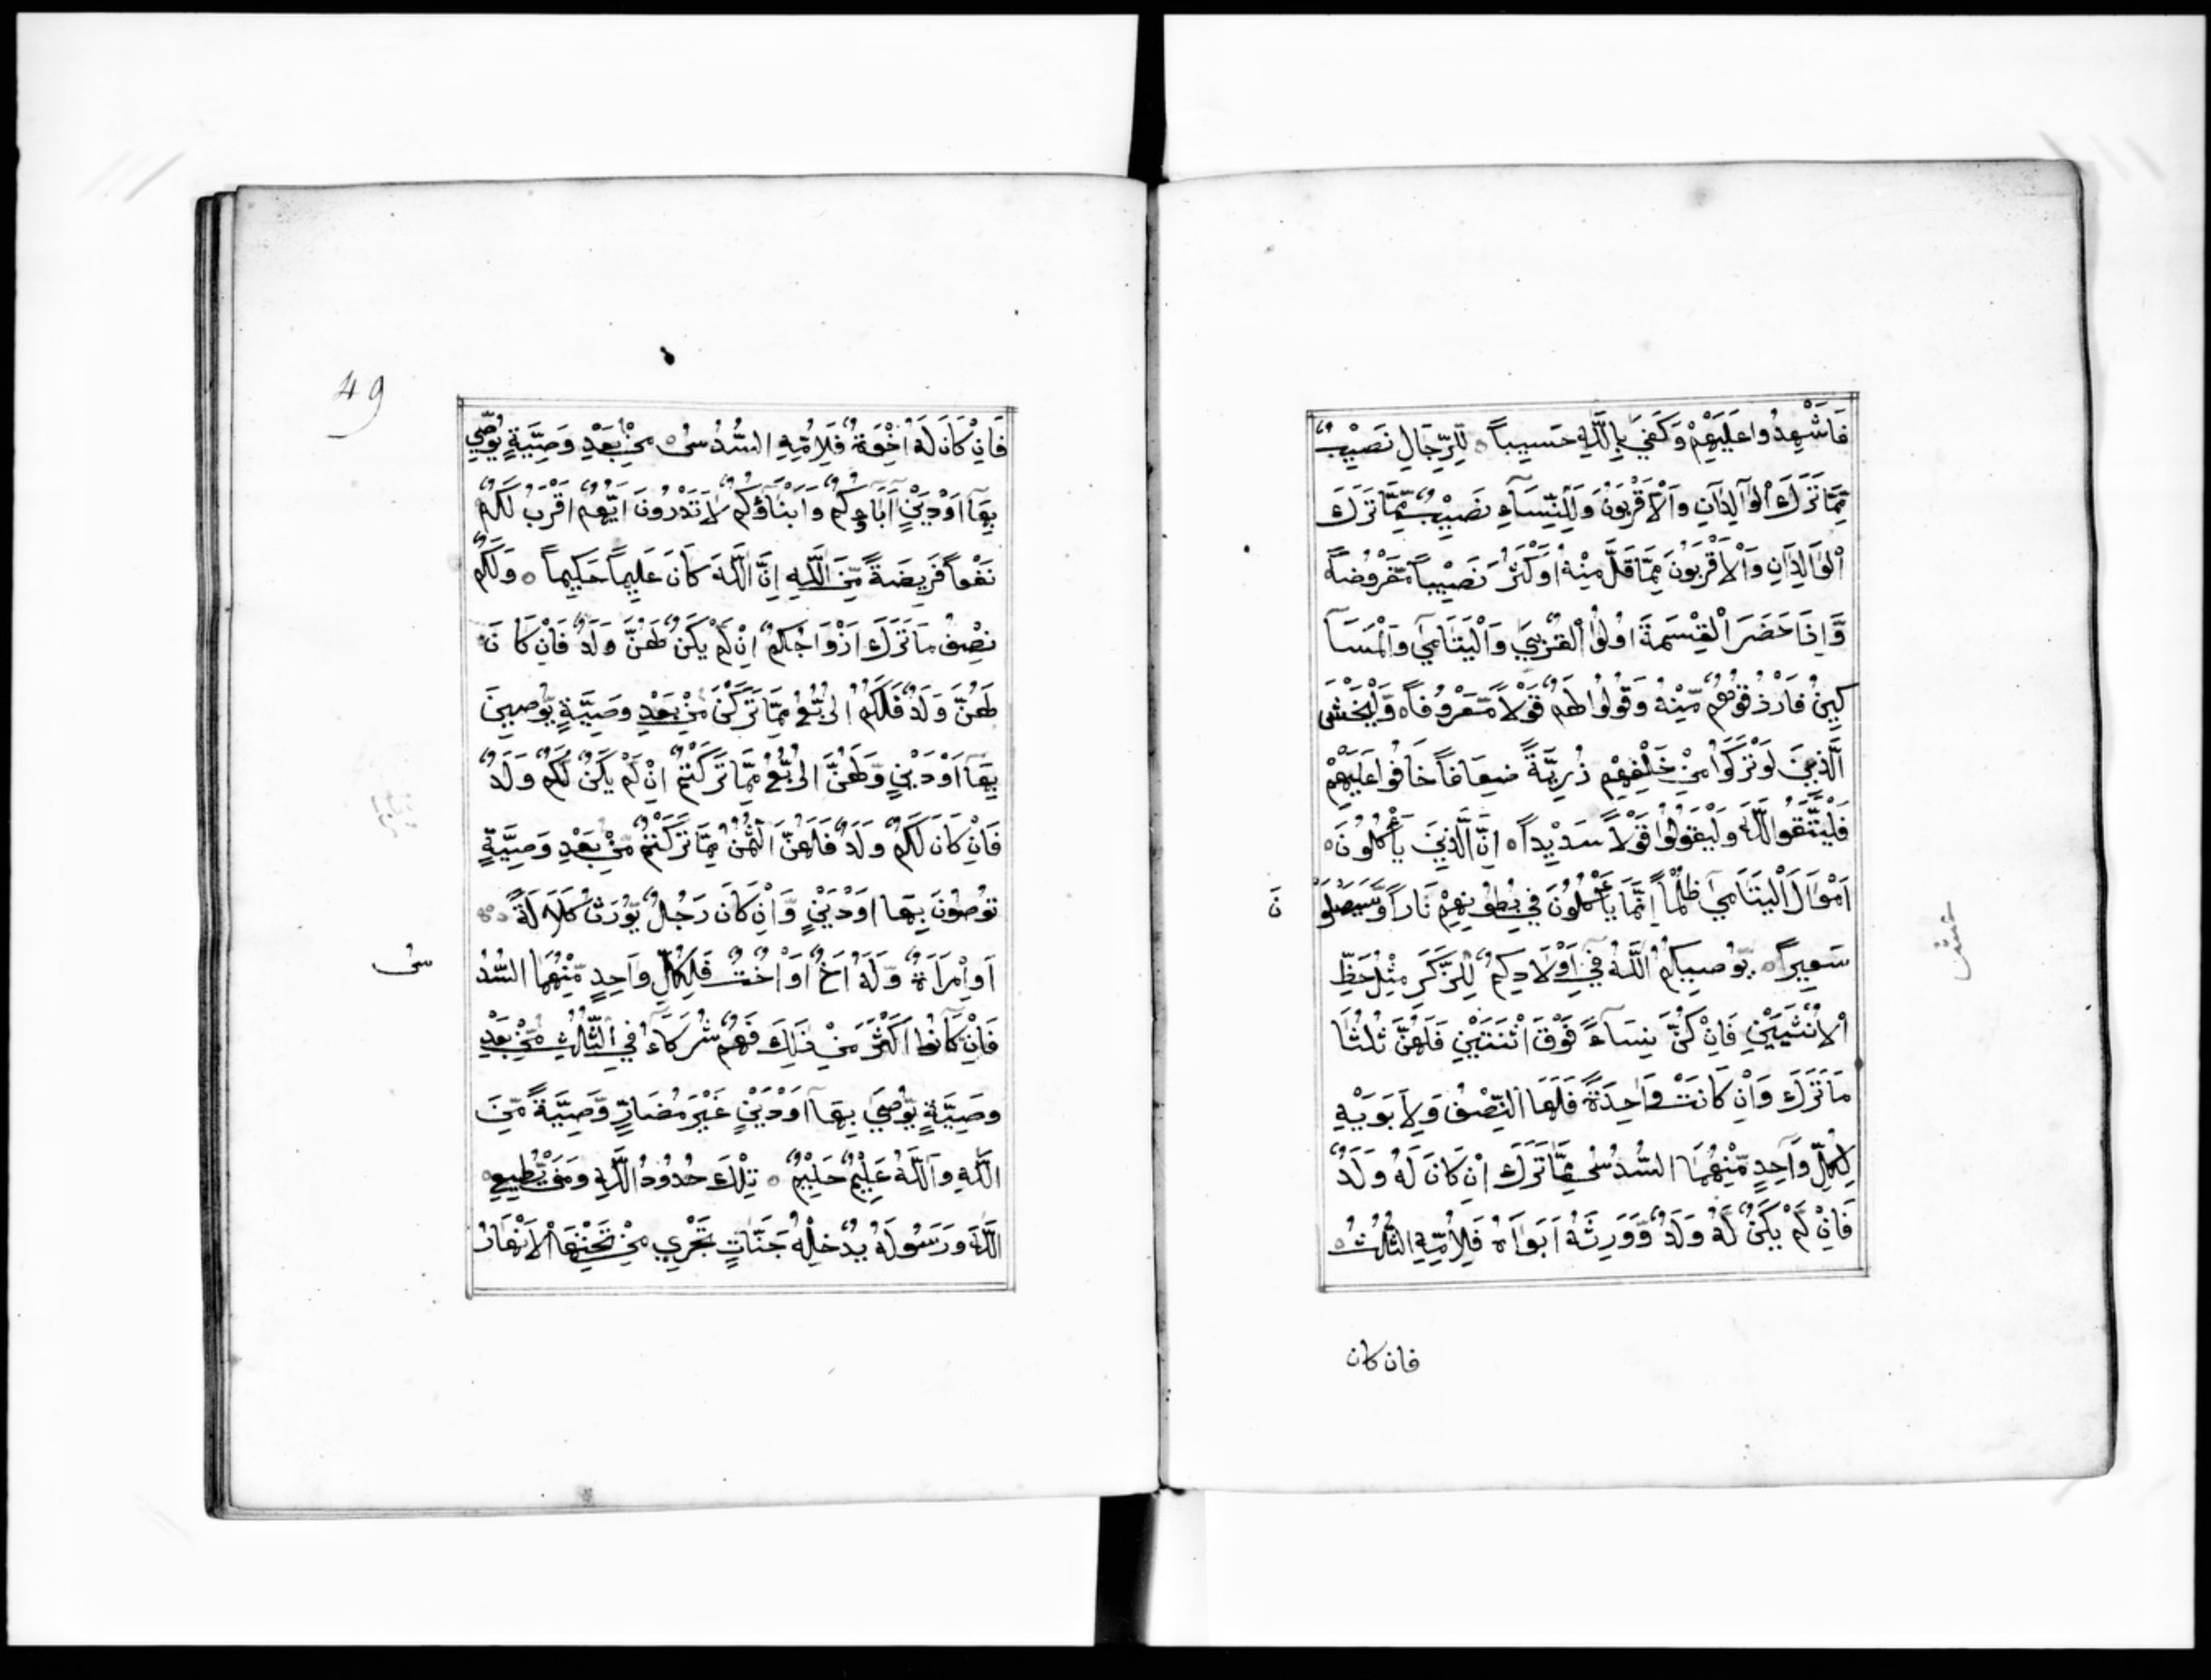 فَاَشْهِدُوا عَلَيْهِمْ وَكَفَىٰ بِاللَّهِ حَسِيباً ۝ لِّلرِّجَالِ نَصِيْبٌ
مِّمَّا تَرَكَ الْوَالِدَانِ وَالْاَقْرَبُوْنَ وَلِلنِّسَآءِ نَصِيْبٌ مِّمَّا تَرَكَ
الْوَالِدَانِ وَالْاَقْرَبُوْنَ مِمَّا قَلَّ مِنْهُ اَوْ كَثُرَ نَصِيْباً مَّفْرُوْضاً ۝
وَّاِذَا حَضَرَ الْقِسْمَةَ اُولُوا الْقُرْبٰى وَالْيَتَامٰى وَالْمَسَا
كِيْنُ فَارْذُقُوْهُمْ مِّنْهُ وَقُوْلُوا لَهُمْ قَوْلاً مَّعْرُوْفاً ۝ وَّلْيَخْشَى
الَّذِيْنَ لَوْ تَرَكُوا مِنْ خَلْفِهِمْ ذُرِّيَّةً ضِعَافاً خَافُوا عَلَيْهِمْ
فَلْيَتَّقُوا اللَّهَ وَلْيَقُوْلُوا قَوْلاً سَدِيْداً ۝ اِنَّ الَّذِيْنَ يَأْكُلُوْنَ ۝
اَمْوَالَ الْيَتَامٰى ظُلْماً اِنَّمَا يَأْكُلُوْنَ فِي بُطُوْنِهِمْ نَاراً وَّسَيَصْلَوْ نَ
سَعِيْراً ۝ يُّوْصِيكُمُ اللَّهُ فِي اَوْلَادِكُمْ لِلذَّكَرِ مِثْلُ حَظِّ
الْاُنْثَيَيْنِ فَاِنْ كُنَّ نِسَآءً فَوْقَ اثْنَتَيْنِ فَلَهُنَّ ثُلُثَا
مَا تَرَكَ وَاِنْ كَانَتْ وَاحِدَةً فَلَهَا النِّصْفُ وَلِاَبَوَيْهِ
لِكُلِّ وَاحِدٍ مِّنْهُمَا السُّدُسُ مِمَّا تَرَكَ اِنْ كَانَ لَهُ وَلَدٌ
فَاِنْ لَّمْ يَكُنْ لَّهُ وَلَدٌ وَّوَرِثَهُ اَبَوَاهُ فَلِاُمِّهِ الثُّلُثُ ۝
فان كان
عشر
49
فَاِنْ كَانَ لَهُ اِخْوَةٌ فَلِاُمِّهِ السُّدُسُ ۝ مِنْ بَعْدِ وَصِيَّةٍ يُّوْصِي
بِهَا اَوْ دَيْنٍ اٰبَآؤُكُمْ وَاَبْنَآؤُكُمْ لَا تَدْرُوْنَ اَيُّهُمْ اَقْرَبُ لَكُمْ
نَفْعاً فَرِيضَةً مِّنَ اللَّهِ اِنَّ اللَّهَ كَانَ عَلِيماً حَكِيماً ۝ وَلَكُمْ
نِصْفُ مَا تَرَكَ اَزْوَاجُكُمْ اِنْ لَّمْ يَكُنْ لَّهُنَّ وَلَدٌ فَاِنْ كَا نَ
لَهُنَّ وَلَدٌ فَلَكُمُ الرُّبُعُ مِمَّا تَرَكْنَ مِنْ بَعْدِ وَصِيَّةٍ يُّوْصِينَ
بِهَا اَوْ دَيْنٍ وَّلَهُنَّ الرُّبُعُ مِمَّا تَرَكْتُمْ اِنْ لَّمْ يَكُنْ لَّكُمْ وَلَدٌ
فَاِنْ كَانَ لَكُمْ وَلَدٌ فَلَهُنَّ الثُّمُنُ مِمَّا تَرَكْتُمْ مِّنْ بَعْدِ وَصِيَّةٍ
تُوْصُوْنَ بِهَا اَوْ دَيْنٍ وَّاِنْ كَانَ رَجُلٌ يُّوْرَثُ كَلَالَةً
اَوِ امْرَاَةٌ وَّلَهُ اَخٌ اَوْ اُخْتٌ فَلِكُلِّ وَاحِدٍ مِّنْهُمَا السُّدُ سُ
فَاِنْ كَانُوا اَكْثَرَ مِنْ ذٰلِكَ فَهُمْ شُرَكَآءُ فِي الثُّلُثِ مِنْ بَعْدِ
وَصِيَّةٍ يُّوْصٰى بِهَا اَوْ دَيْنٍ غَيْرَ مُضَارٍّ وَّصِيَّةً مِّنَ
اللَّهِ وَاللَّهُ عَلِيْمٌ حَلِيْمٌ ۝ تِلْكَ حُدُوْدُ اللَّهِ وَمَنْ يُّطِيعِ ۝
اللَّهَ وَرَسُولَهُ يُدْخِلْهُ جَنَّاتٍ تَجْرِي مِنْ تَحْتِهَا الْاَنْهَارُ